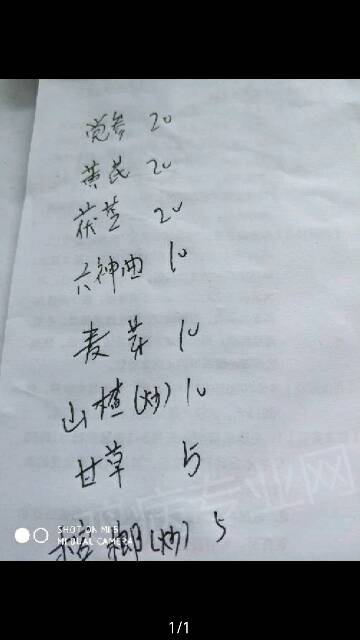 党参 20
黄芪 20
茯苓 20
六神曲 10
麦芽 10
山楂(炒) 10
甘草 5
槟榔(炒) 5
SHOT ON MI 5
MI DUAL CAMERA
1/1